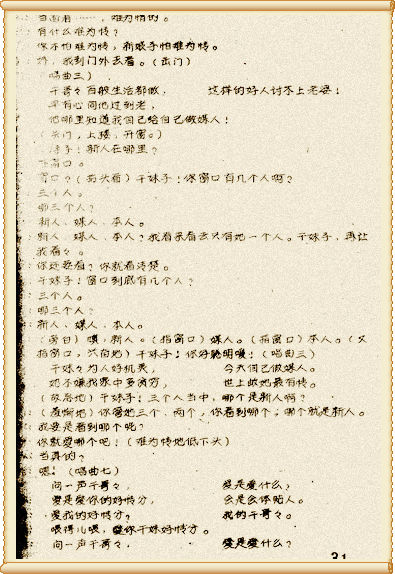 当面看……，难为情的。
有什么难为情？
你不怕难为情，新娘子怕难为情。
我到门外去看。（出门）
（唱曲三）
干哥々百般生活都做，　　这样的好人讨不上老婆！
早有心同他过到老，
他哪里知道我自己给自己做媒人！
（关门，上楼，开窗。）
妹子！新人在哪里？
窗口。
窗口？（抬头看）干妹子！你窗口有几个人啊？
三个人。
哪三个人？
新人、媒人、本人。
新人、媒人、本人？我看来看去只有她一个人。干妹子，再让
我看々。
你还要看？你就看清楚。
干妹子！窗口到底有几个人？
三个人。
哪三个人？
新人、媒人、本人。
（旁白）噢，新人。（指窗口）媒人。（指窗口）本人。（又
指窗口，只有她）干妹子！你好聪明噢！（唱曲三）
干妹々为人好机灵，　　今天自己做媒人。
她不嫌我家中多贫穷，　　世上她她最有情。
（故意地）干妹子！三个人当中，哪个是新人啊？
（羞怕地）你管她三个、两个，你看到哪个，哪个就是新人。
我要是看到哪个呢？
你就要哪个吧！（难为情地低下头）
当真的？
嗯！（唱曲七）
问一声干哥々，　　爱是爱什么？
爱是爱你的好情方，　　会是会体贴人。
爱我的好情方，　　我的干哥々。
喂得儿喂，爱你干妹好情方。
问一声干哥々，　　爱是爱什么？
31